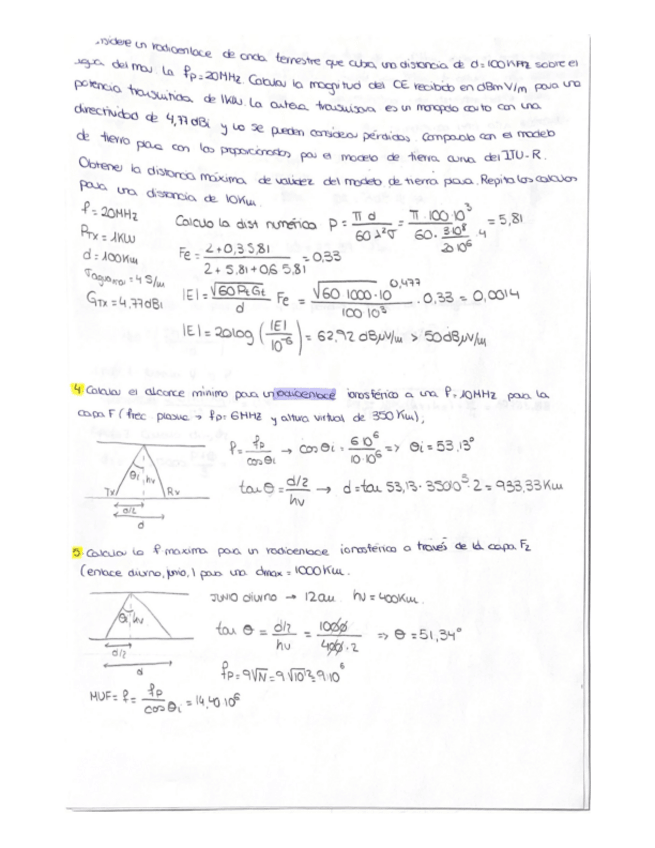 nsidere un radioenlace de onda terrestre que cubra una distancia de d=100KMz sobre el
agua del mar. La fp=20MHz. Calcular la magnitud del CE recibido en dBmV/m para una
potencia transmitida de 1KW. La antena transmisora es un monopolo corto con una
directividad de 4,77dBi y no se pueden considerar pérdidas. Compararlo con el modelo
de tierra plana con los proporcionados por el modelo de tierra curva del ITU-R.
Obtener la distancia máxima de validez del modelo de tierra plana. Repita los cálculos
para una distancia de 10Km.
f=20MHz
PTx=1KW
d=100Km
σagua mar=4 S/m
GTx=4,77dBi
Calculo la dist numérica P = πd / 60λ²σ = π·100·10³ / 60·3·10⁸/20·10⁶·4 = 5,81
Fe = 2+0,3 5,81 / 2+5,81+0,6 5,81 = 0,33
|E| = √60PtGt / d Fe = √60 1000·10^0,477 / 100 10³ · 0,33 = 0,0014
|E| = 20log(|E| / 10⁻⁶) = 62,92 dBμV/m > 50dBμV/m
4. Calcular el alcance mínimo para un radioenlace ionosférico a una f=10MHz para la
capa F (frec plasma → fp=6MHz y altura virtual de 350Km),
θi hv
Tx Rx
d/2
d
f = fp / cosθi → cosθi = 6·10⁶ / 10·10⁶ => θi = 53,13°
tanθ = d/2 / hv → d = tan 53,13·350·10³·2 = 933,33Km
5. Calcular la f máxima para un radioenlace ionosférico a través de la capa F2
(enlace diurno, junio,) para una dmax=1000Km.
θi hv
d/2
d
JUNIO diurno → 12am hv=400Km.
tan θ = d/2 / hv = 1000 / 400·2 => θ=51,34°
fp=9√N=9√10¹²=9·10⁶
MUF= f = fp / cosθi = 14,40 10⁶